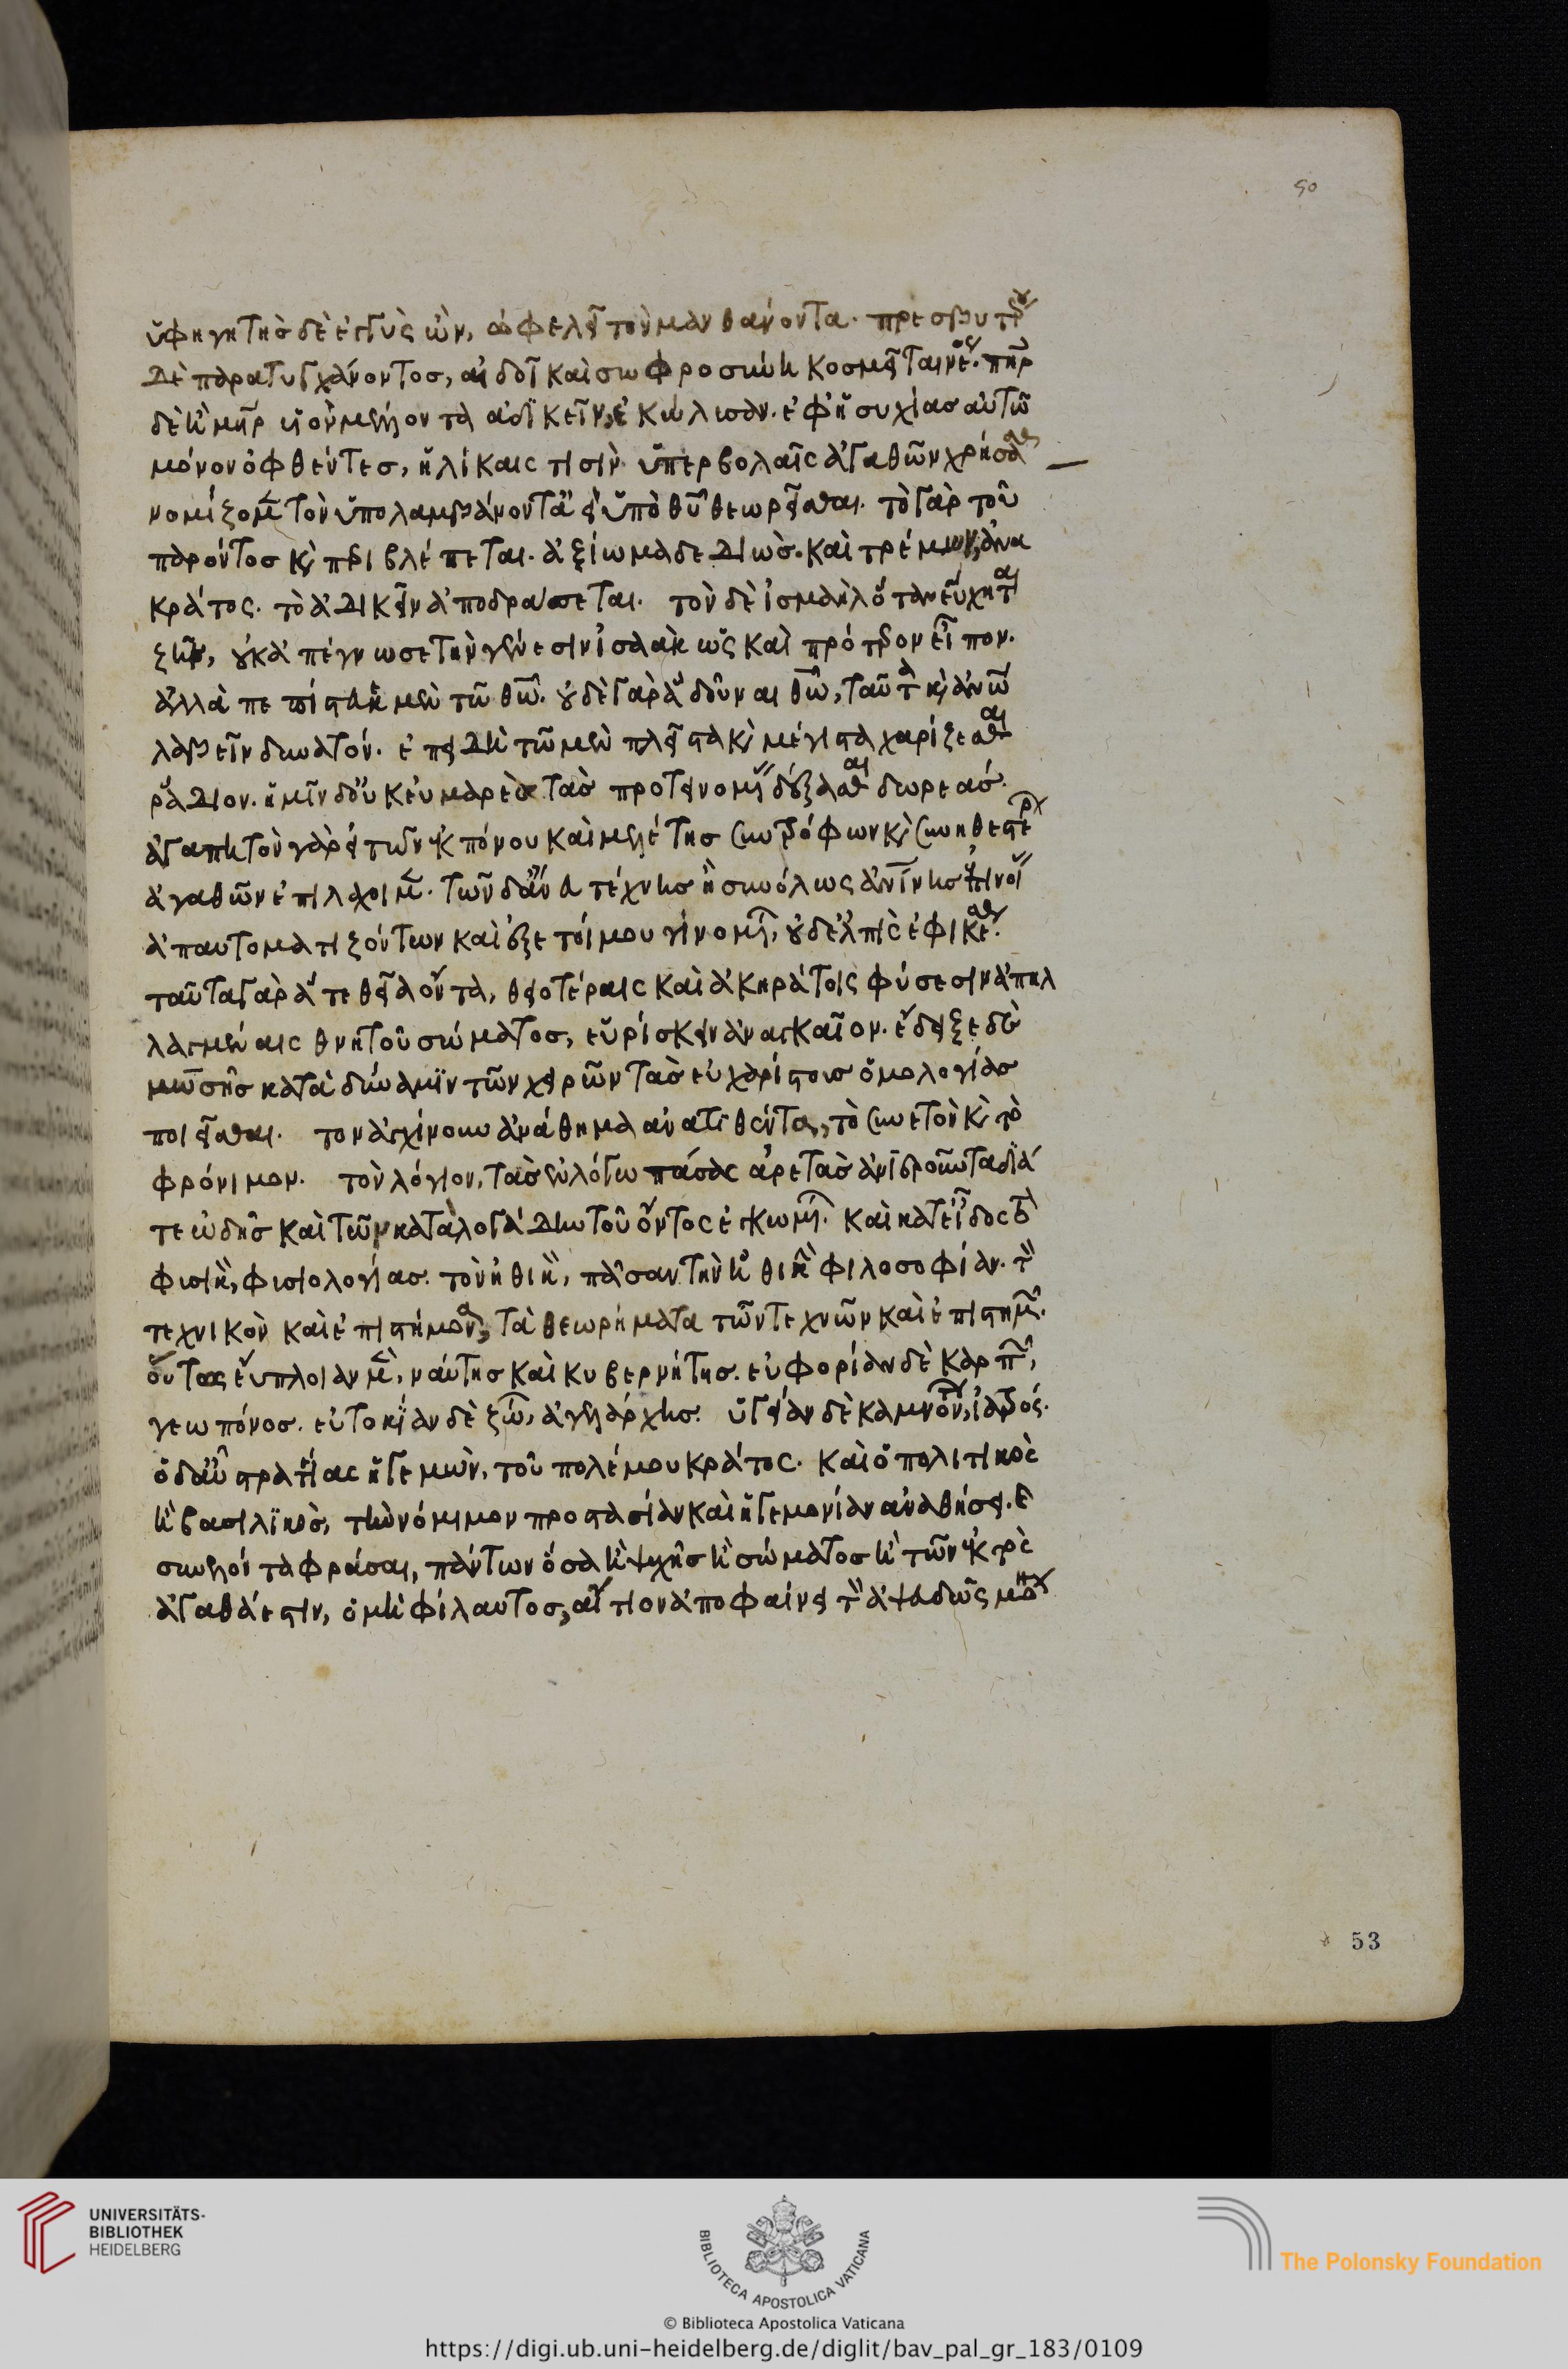 50
ὑφηγητὴς δὲ ἐγγὺς ὢν, ὠφελεῖ τὸν μανθάνοντα. πρεσβυτέρου
δὲ παρατυγχάνοντος, αἰδοῖ καὶ σωφροσύνη κοσμεῖται νέος. πατὴρ
δὲ ἢ μήτηρ υἱὸν μέλλοντα ἀδικεῖν, ἐκώλυσαν. ἐφ' ἡσυχίας αὐτῶ
μόνον ὀφθέντες, ἡλίκαις τισὶν ὑπερβολαῖς ἀγαθῶν χρῆσθαι
νομίζομεν τὸν ὑπολαμβάνοντα ἀεὶ ὑπὸ θεοῦ θεωρεῖσθαι. τὸ γὰρ τοῦ
παρόντος καὶ περιβλέπεται. ἀξίωμα δεδιὼς. καὶ τρέμων, ἀνα
κράτος. τὸ ἀδικεῖν ἀποδράσεται. τὸν δὲ ἰσμαὴλ ὅταν εὔχηται
ζῆν, οὐκ ἀπέγνωσε τὴν γένεσιν ἰσαὰκ ὡς καὶ πρότερον εἶπον.
ἀλλὰ πεπίστευκε μὲν τῶ θεῶ. οὐδὲ γὰρ ἃ δοῦναι θεῶ, ταῦτα καὶ ἀνθρώπω
λαβεῖν δυνατόν. ἐπειδὴ τῶ μὲν πλεῖστα καὶ μέγιστα χαρίζεσθαι
ῥάδιον. ἡμῖν δ' οὐκ εὐμαρὲς τὰς προτεινομένας δέξασθαι δωρεάς.
ἀγαπητὸν γὰρ εἰ τῶν ἐκ πόνου καὶ μελέτης συντρόφων καὶ συνηθεστέρων
ἀγαθῶν ἐπιλάχοιμεν. τῶν δ' ἄνευ τέχνης ἢ συνόλως ἀνθρωπίνης ἐπινοίας
ἀπαυτοματιζόντων καὶ ἐξ ἑτοίμου γινομένων, οὐδ' ἐλπὶς ἐφικέσθαι.
ταῦτα γὰρ ἅτε θεῖα ὄντα, θειοτέραις καὶ ἀκηράτοις φύσεσιν ἀπηλ
λαγμέναις θνητοῦ σώματος, εὑρίσκειν ἀναγκαῖον. ἔδειξε δὲ
μωϋσῆς κατὰ δύναμιν τῶν χειρῶν τὰς εὐχαρίστους ὁμολογίας
ποιεῖσθαι. τὸν ἀγχίνουν ἀνάθημα ἀνατιθέντα, τὸ συνετὸν καὶ τὸ
φρόνιμον. τὸν λόγιον, τὰς ἐν λόγω πάσας ἀρετὰς ἀνιεροῦντα διά
τε ὠδῆς καὶ τῶν καταλογάδην τοῦ ὄντος ἐγκωμίων. καὶ κατ' εἶδος τὸν
φυσικὸν, φυσιολογίας. τὸν ἠθικὸν, πᾶσαν τὴν ἠθικὴν φιλοσοφίαν. τὸν
τεχνικὸν καὶ ἐπιστήμονα, τὰ θεωρήματα τῶν τεχνῶν καὶ ἐπιστημῶν.
οὕτως εὔπλοιαν μὲν, ναύτης καὶ κυβερνήτης. εὐφορίαν δὲ καρπῶν,
γεωπόνος. εὐτοκίαν δὲ ζώων, ἀγελάρχης. ὑγείαν δὲ καμνόντων, ἰατρός.
ὁ δ' αὖ στρατείας ἡγεμὼν, τοῦ πολέμου κράτος. καὶ ὁ πολιτικὸς
ἢ βασιλικὸς, τὴν νόμιμον προστασίαν καὶ ἡγεμονίαν ἀναθήσει. καὶ
συνελόντα φράσαι, πάντων ὅσα ἢ ψυχῆς ἢ σώματος ἢ τῶν ἐκτὸς
ἀγαθά ἐστιν, ὁ μὴ φίλαυτος, αἴτιον ἀποφαίνει τὸν ἀψευδῶς μόνον
53
UNIVERSITÄTS-
BIBLIOTHEK
HEIDELBERG
BIBLIOTECA APOSTOLICA VATICANA
The Polonsky Foundation
© Biblioteca Apostolica Vaticana
https://digi.ub.uni-heidelberg.de/diglit/bav_pal_gr_183/0109